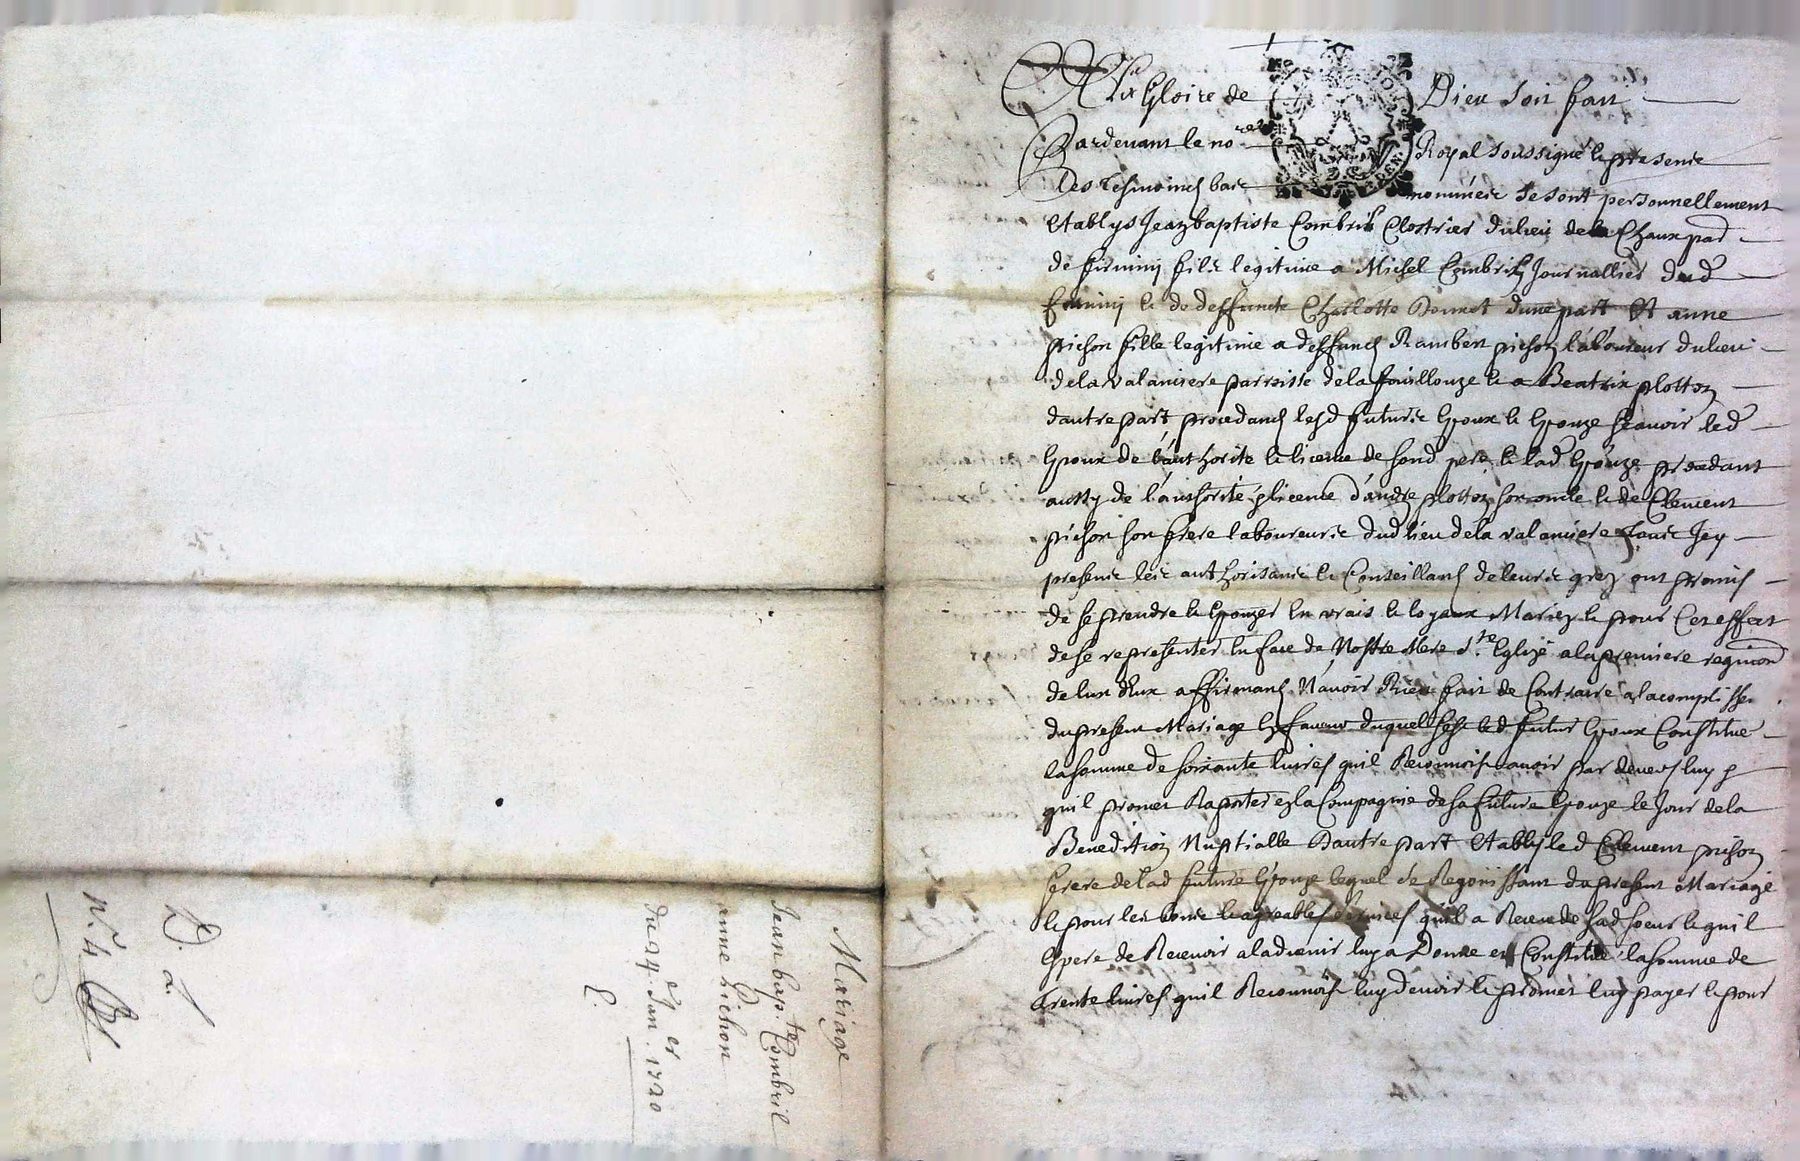 Mariage
Jean bap.te Combril
anne Pichon
du 24.e Jan.er 1720
D. 2.
N.° 4
A la Gloire de Dieu soit fait
Pardevant le no.re Royal soussigné & presens
les tesmoings bas nommés se sont personnellement
etablys Jean baptiste Combril Clostrier du lieu de la Chaux par.
de firminy fils legitime a Michel Combril Journallier dud
firminy & de deffuncte Charlotte dune part Et anne
pichon fille legitime a deffunct Rambert pichon laboureur du lieu
de la valamiere parroisse de la fouillouze & a Beatrix plotton
dautre part procedants lesd futurs Epoux & Epouze scavoir led
Epoux de lauthorité & licence de sond pere & lad Epouze procedant
aussy de l'authorité & licence d'andre plotton son oncle & de Clement
pichon son frere laboureurs dud lieu de la valamiere tous Jcy
presens les authorisants & Conseillants de leurs grez ont promis
de se prendre & Epouzer En vrais & loyaux Mariez & pour Cet effect
de se representer En face de Nostre Mere S.te Eglize a la premiere requi.on
de lun d'Eux affirmants N'avoir Rien fait de Contraire a lacomplisse.
du present Mariage En faveur duquel sest led futur Epoux Constitué
la somme de soixante livres quil Reconnoist avoir par devers luy &
quil promet Raporter en la Compagnie de sa future Epouze le Jour de la
Benediction Nuptialle Dautre part Etably led Clement pichon
frere de lad future Epouze lequel se Regouissant du present Mariage
& pour les bons & agreables services quil a Receu de sad soeur & quil
Espere de Recevoir a ladvenir luy a Donné et Constitué la somme de
trente livres quil Reconnoist luy devoir & promet luy payer & pour